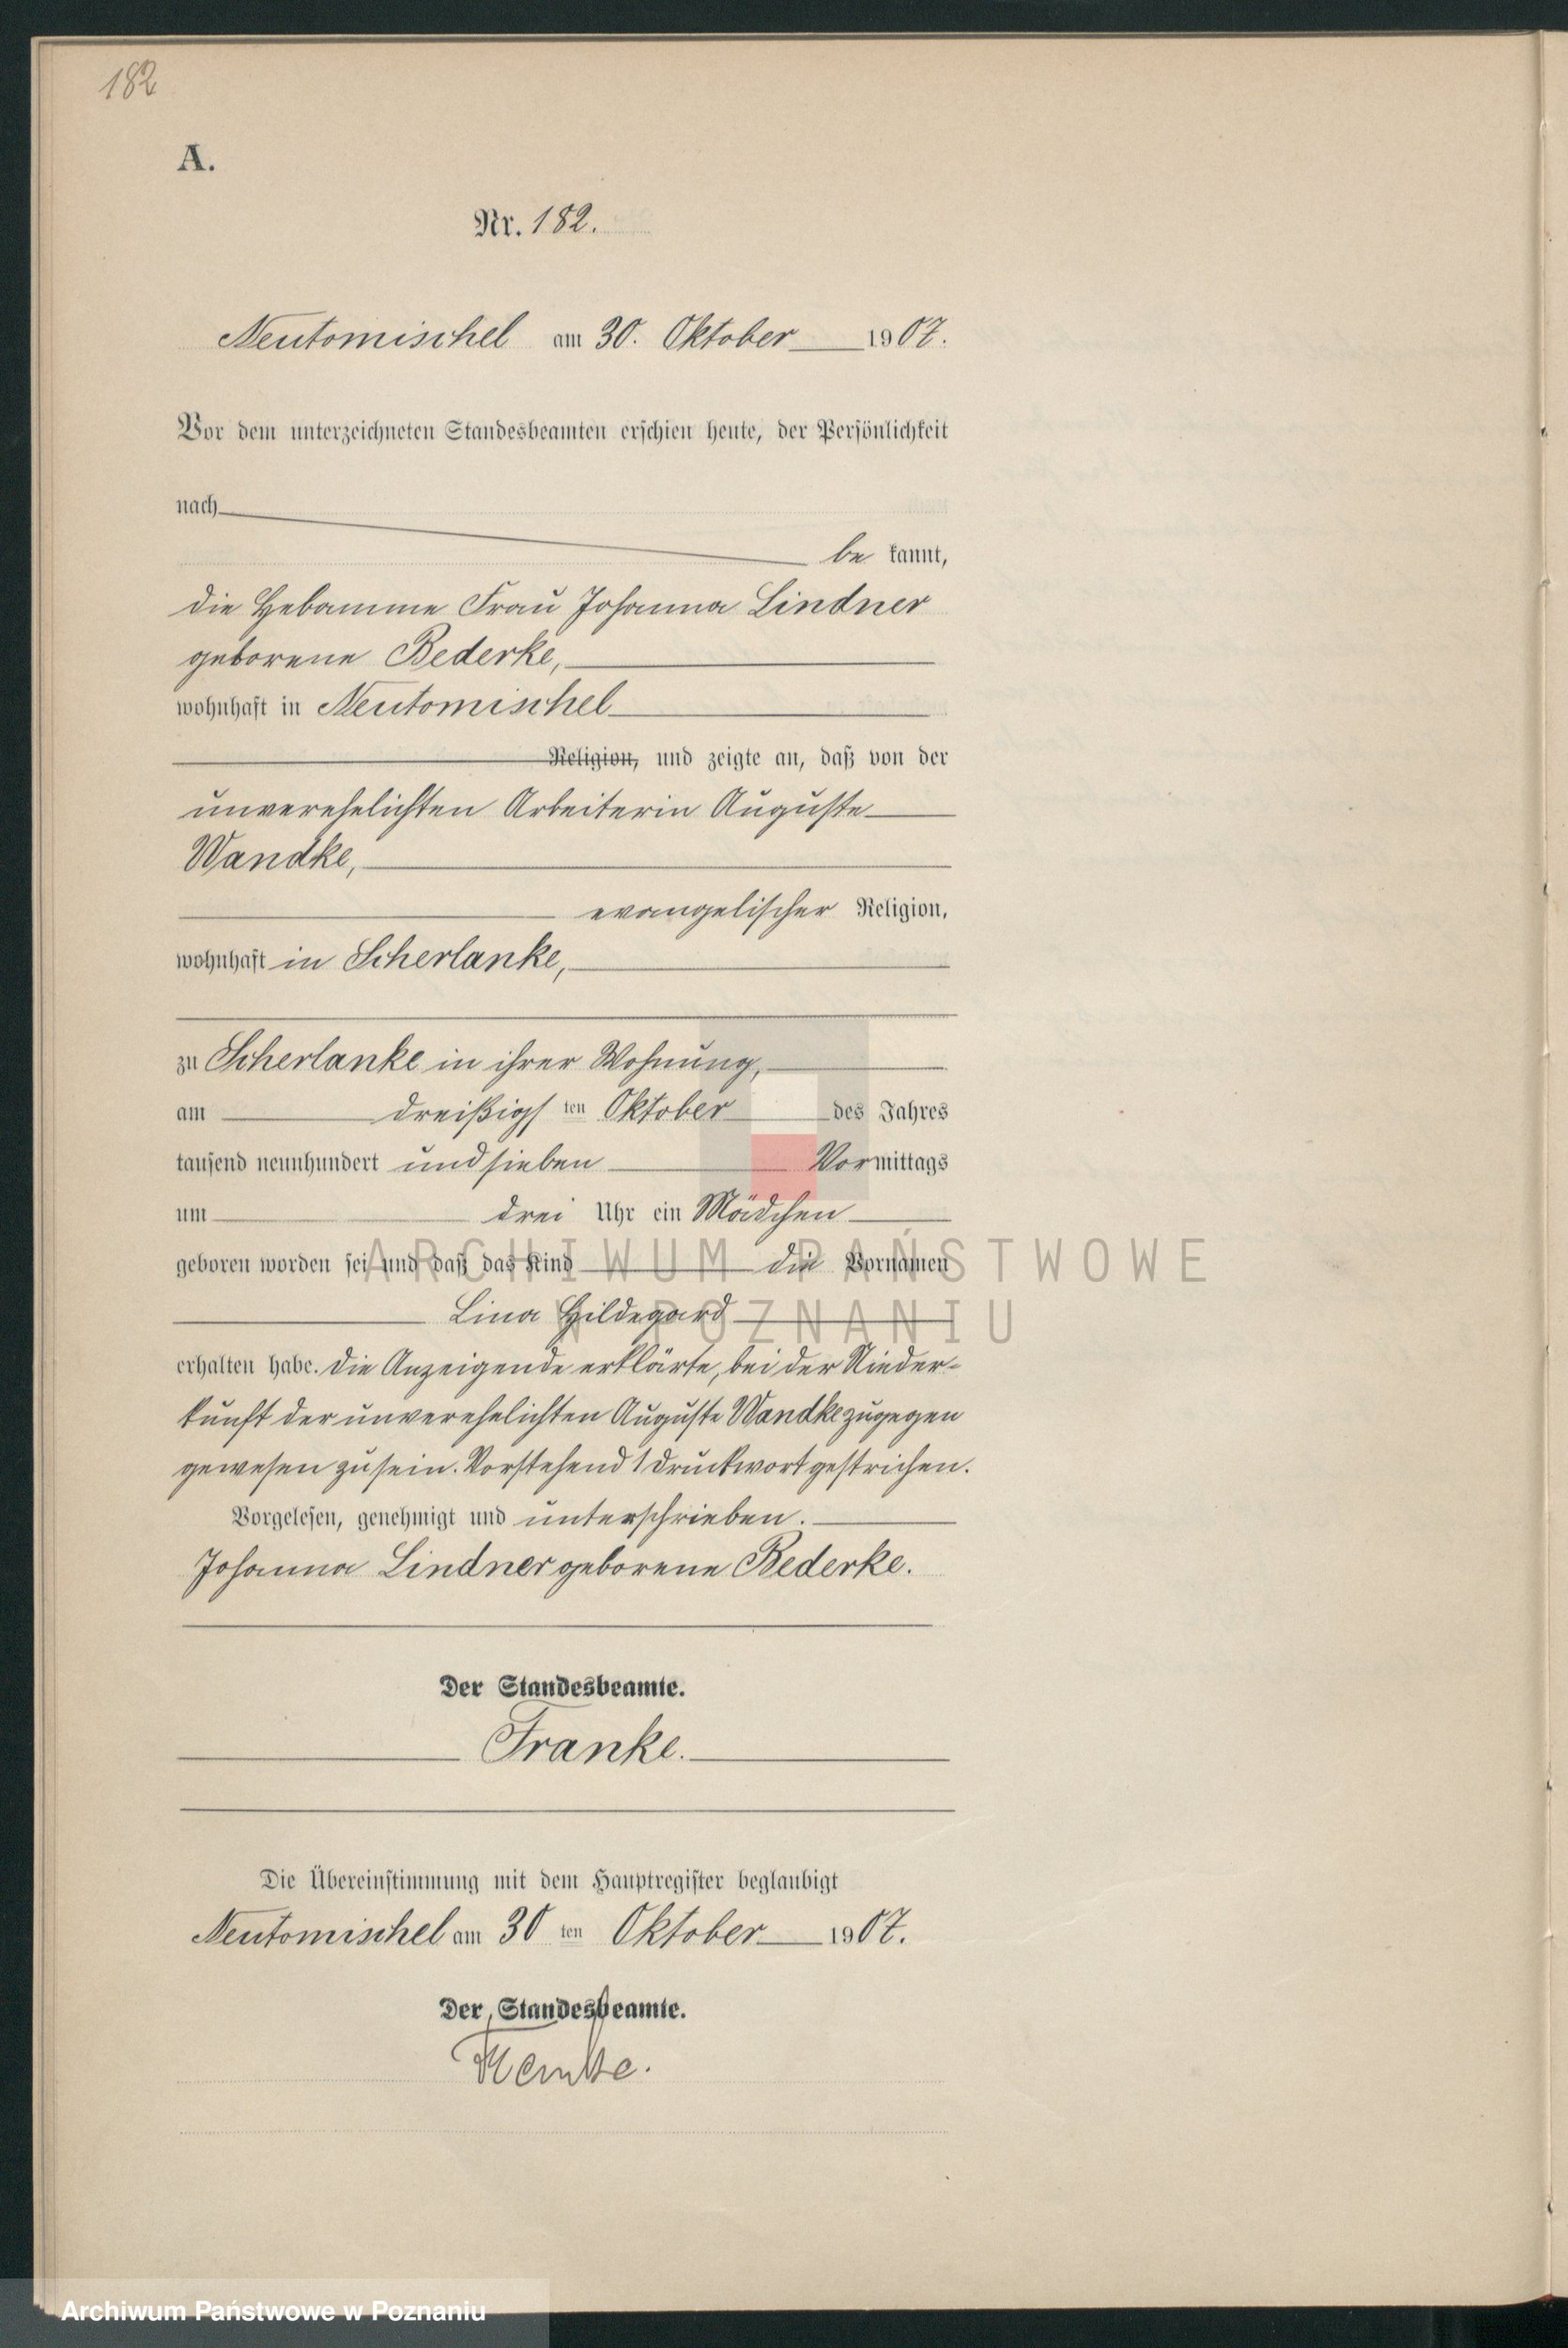 182
A.
Nr. 182.
Neutomischel am 30. Oktober 1907.
Vor dem unterzeichneten Standesbeamten erschien heute, der Persönlichkeit
nach
be kannt,
die Hebamme Frau Johanna Lindner
geborene Bederke,
wohnhaft in Neutomischel
Religion, und zeigte an, daß von der
unverehelichten Arbeiterin Auguste
Wandke,
evangelischer Religion,
wohnhaft in Scherlanke,
zu Scherlanke in ihrer Wohnung,
am dreißigsten Oktober des Jahres
tausend neunhundert und sieben Vormittags
um drei Uhr ein Mädchen
geboren worden sei und daß das Kind die Vornamen
ARCHIWUM PAŃSTWOWE
Lina Hildegard
W POZNANIU
erhalten habe. Die Anzeigende erklärte, bei der Nieder-
kunft der unverehelichten Auguste Wandke zugegen
gewesen zu sein. Vorstehend 1 Druckwort gestrichen.
Vorgelesen, genehmigt und unterschrieben.
Johanna Lindner geborene Bederke.
Der Standesbeamte.
Franke.
Die Übereinstimmung mit dem Hauptregister beglaubigt
Neutomischel am 30 ten Oktober 1907.
Der Standesbeamte.
Archiwum Państwowe w Poznaniu